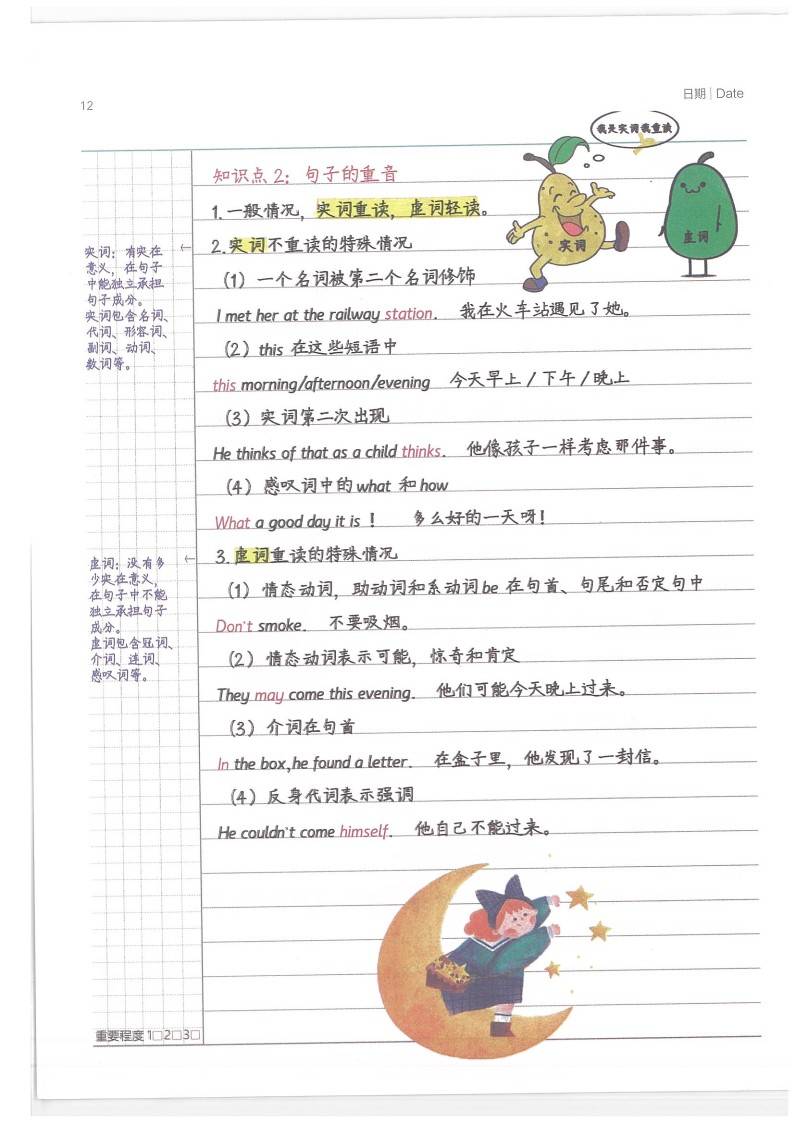 12
日期 | Date
我是实词我重读
实词
虚词
知识点 2：句子的重音
1. 一般情况，实词重读，虚词轻读。
2. 实词不重读的特殊情况
（1）一个名词被第二个名词修饰
I met her at the railway station. 我在火车站遇见了她。
（2）this 在这些短语中
this morning/afternoon/evening 今天早上 / 下午 / 晚上
（3）实词第二次出现
He thinks of that as a child thinks. 他像孩子一样考虑那件事。
（4）感叹词中的 what 和 how
What a good day it is ！ 多么好的一天呀！
3. 虚词重读的特殊情况
（1）情态动词，助动词和系动词 be 在句首、句尾和否定句中
Don't smoke. 不要吸烟。
（2）情态动词表示可能，惊奇和肯定
They may come this evening. 他们可能今天晚上过来。
（3）介词在句首
In the box,he found a letter. 在盒子里，他发现了一封信。
（4）反身代词表示强调
He couldn't come himself. 他自己不能过来。
实词：有实在
意义，在句子
中能独立承担
句子成分。
实词包含名词、
代词、形容词、
副词、动词、
数词等。
←
虚词：没有多
少实在意义，
在句子中不能
独立承担句子
成分。
虚词包含冠词、
介词、连词、
感叹词等。
←
重要程度 1□2□3□